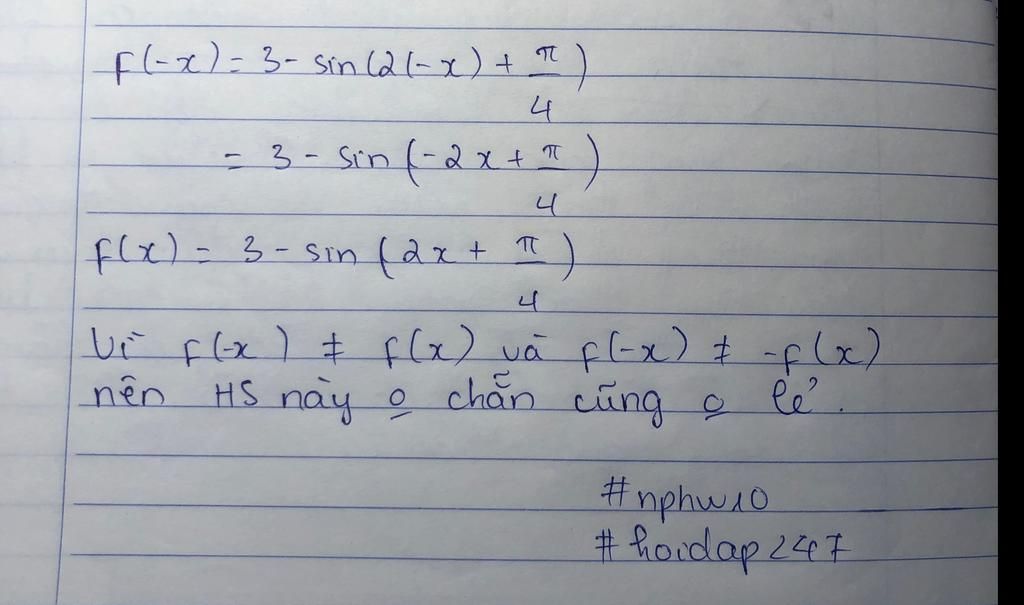 f(-x) = 3 - sin(2(-x) + π/4)
= 3 - sin(-2x + π/4)
f(x) = 3 - sin(2x + π/4)
Vì f(-x) ≠ f(x) và f(-x) ≠ -f(x)
nên HS này o̲ chẵn cũng o̲ lẻ.
#nphw10
#hoidap247